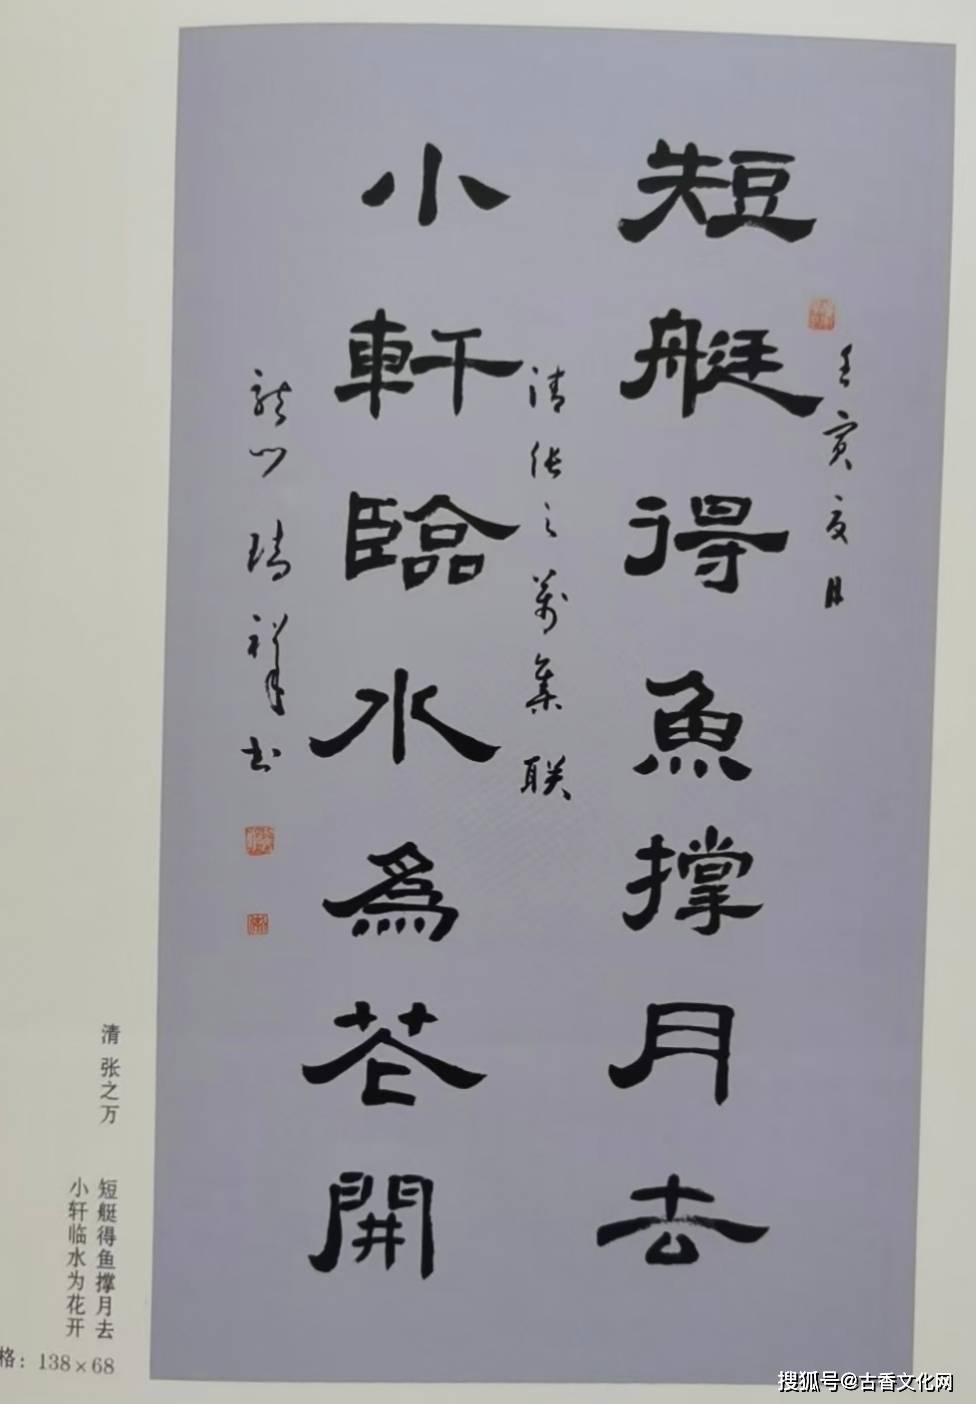 短艇得魚撑月去
壬寅夏月
小軒臨水為花開
清張之萬集联
龍門瑞祥书
清 张之万
短艇得鱼撑月去
小轩临水为花开
格：138×68
搜狐号@古香文化网